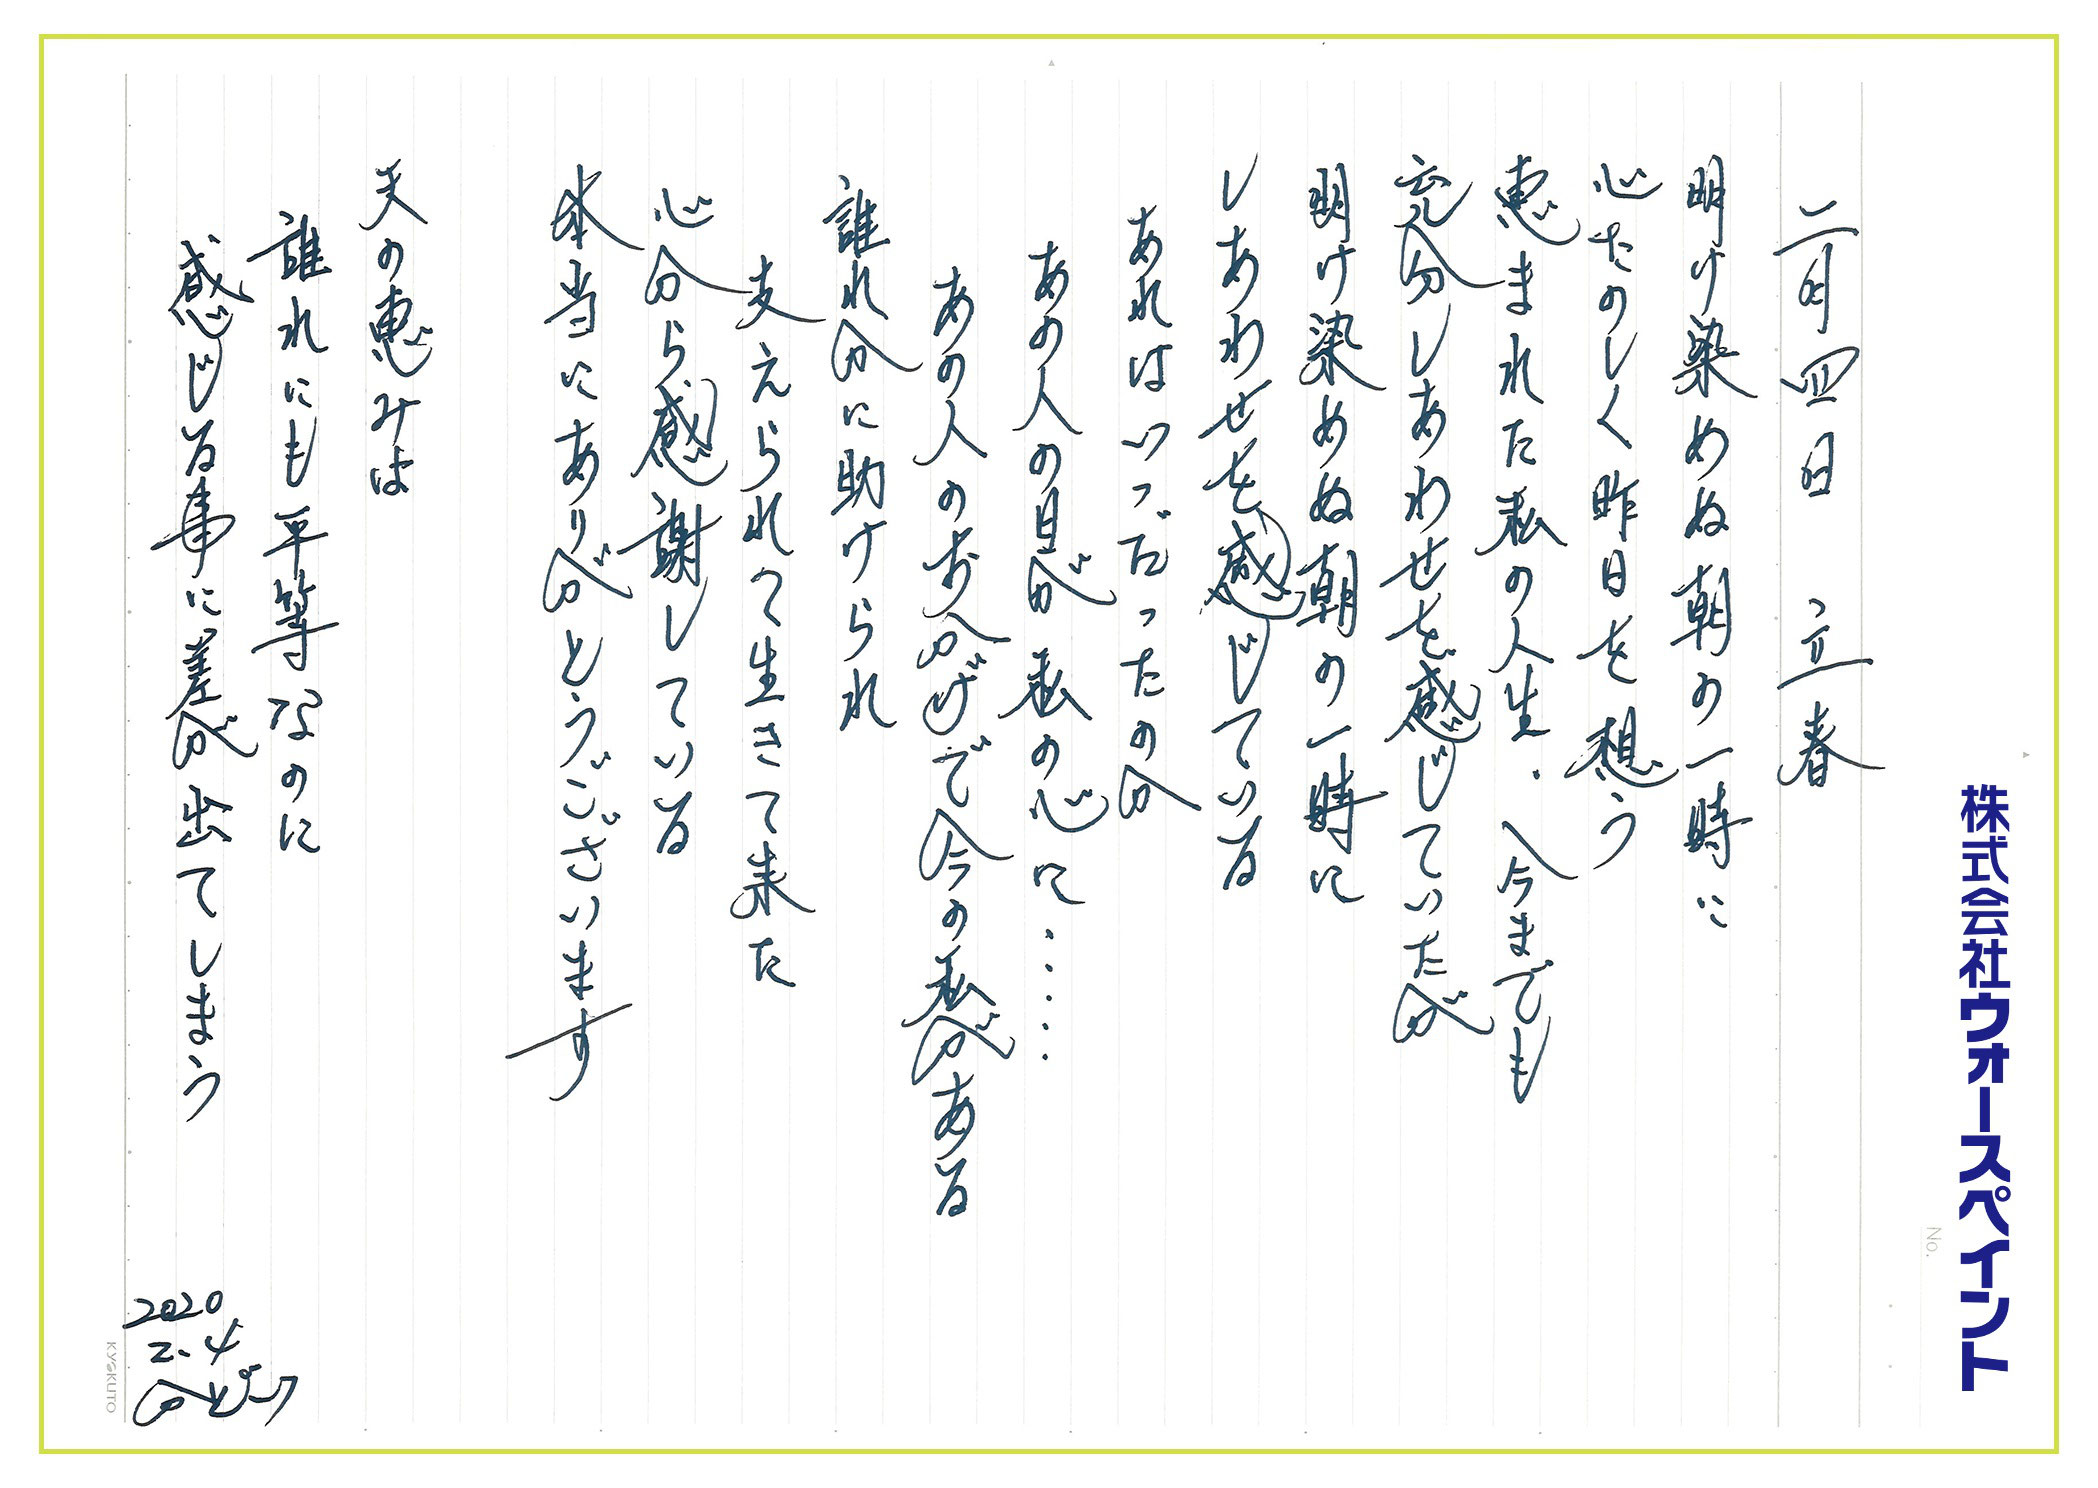 株式会社ウォースペイント
No.
二月四日　立春
明け染めぬ朝の一時に
心たのしく昨日を想う
恵まれた私の人生、今までも
充分しあわせを感じていたが
明け染めぬ朝の一時に
しあわせを感じている
あれはいつだったのか
あの人の目が私の心に・・・・・
あの人のおかげで今の私がある
誰れかに助けられ
支えられて生きて来た
心から感謝している
本当にありがとうございます
天の恵みは
誰れにも平等なのに
感じる事に差が出てしまう
2020
2.4
KYOKUTO